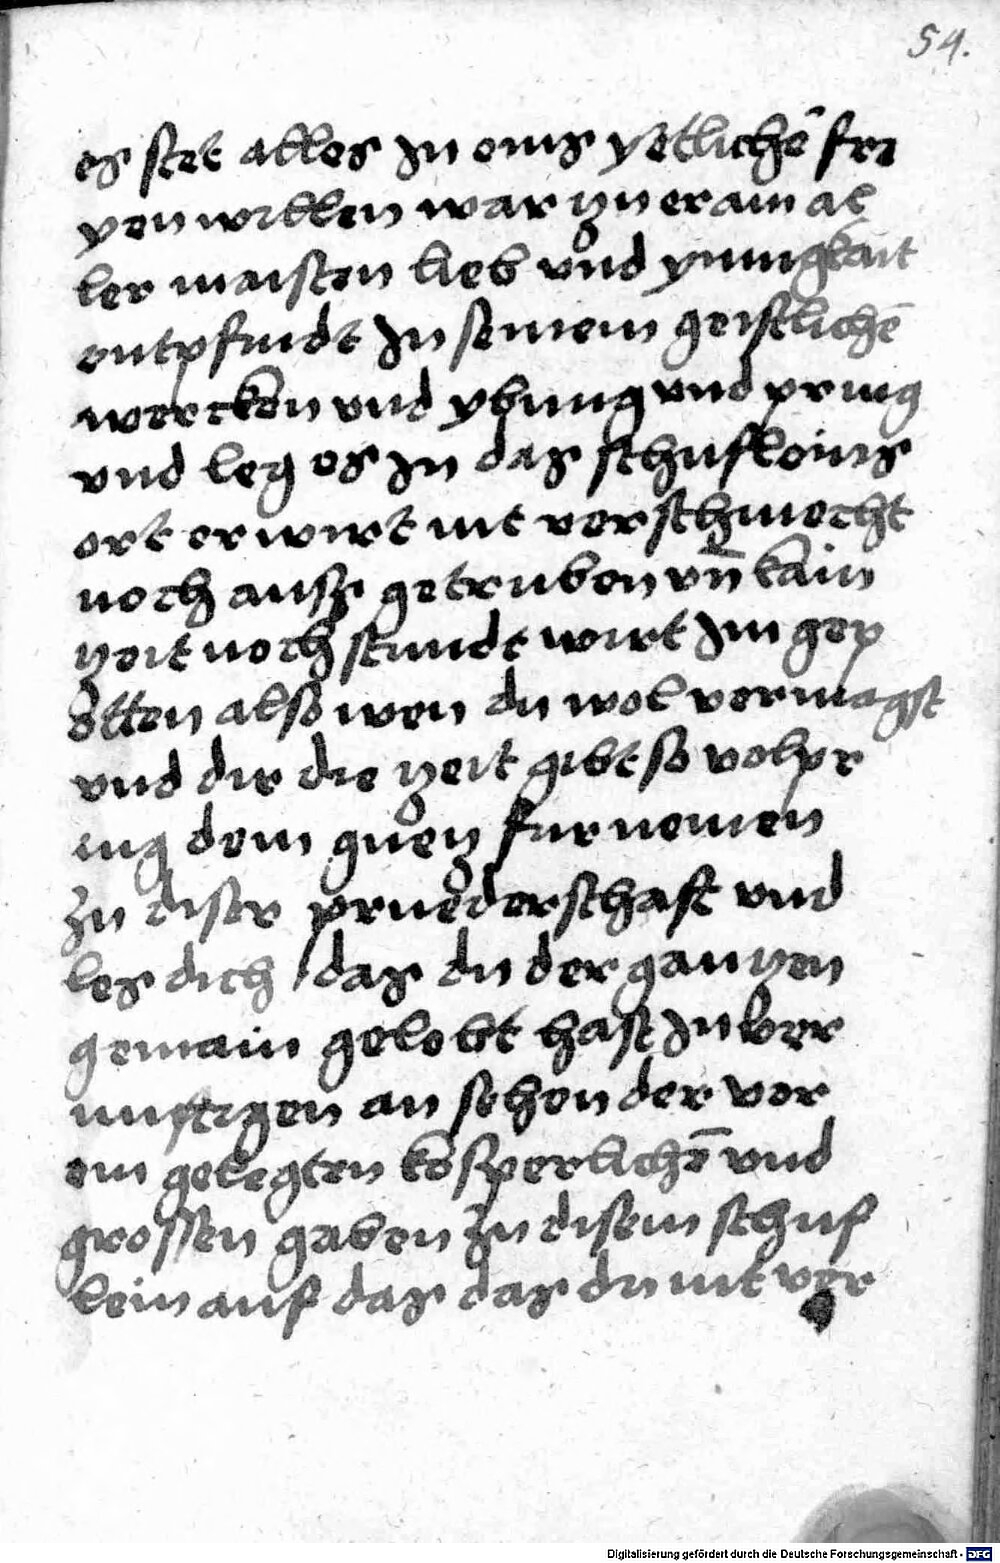 54.
es stet alles zu eins yetlichē fre
yen willen war zn er ain al
ler maisten lieb und ynnigkait
entpfindt zu seinem geistlichē
wercken und ybung und pring
und leg es zu daz schufleins
ort er wirt nit verschmecht
noch auß getriben vn̄ kain
zeit noch stundt wirt Im gep
otten also wen du wol vermagst
und dir die zeit gibt so volpr
ing dem guez furnemen
zu diser pruederschaft und
les dich / daz du der ganzen
gemain gelobt hast zu ver
nuftigen an sehen der vor
ein gelegten kosperlichē und
grossen gaben zu disem schuf
lein auf daz daz du nit ver
Digitalisierung gefördert durch die Deutsche Forschungsgemeinschaft - DFG